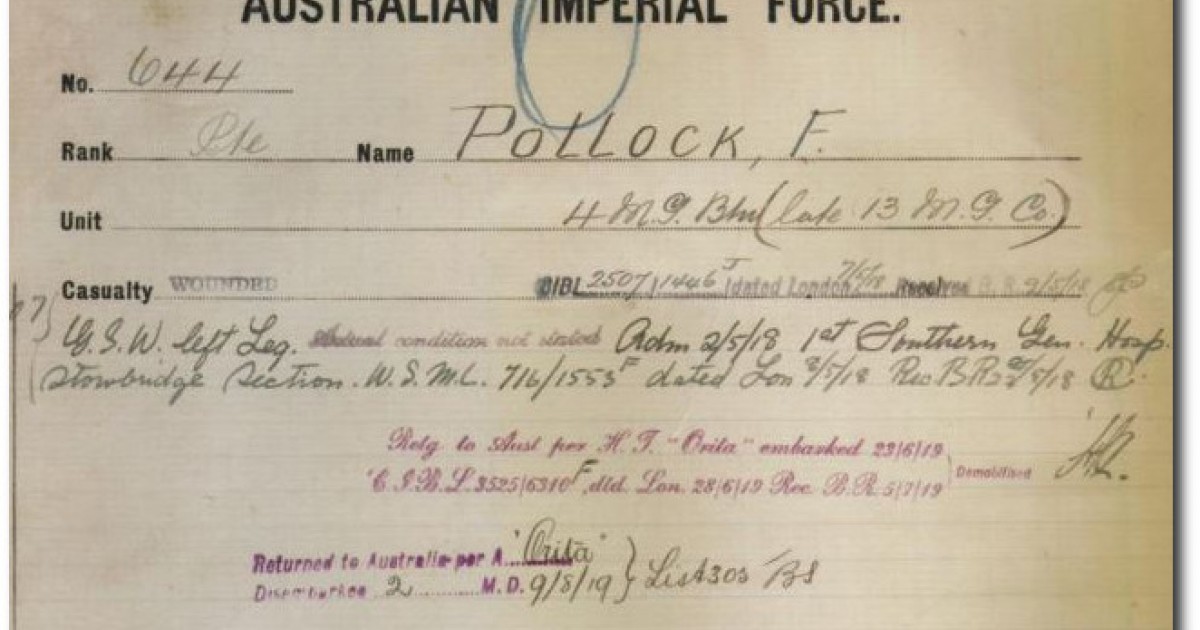 AUSTRALIAN IMPERIAL FORCE.
No. 644
Rank Pte Name POLLOCK, F.
Unit 4 M.G. Bln (late 13 M.G. Co.)
Casualty WOUNDED CIBL 2507/1446 J dated London 7/5/18 Received B.R. 9/5/18
G.S.W. left Leg. Actual condition not stated Adm 2/5/18 1st Southern Gen. Hosp.
Stowbridge Section. W.S.M.L. 716/1553 F dated Lon 8/5/18 Rec B.R. /5/18
Retg to Aust per H.T. "Orita" embarked 23/6/19
C.I.B.L. 3525/6310 F, dtd. Lon. 28/6/19 Rec. B.R. 5/7/19 Demobilised
Returned to Australia per A. "Orita"
Disembarked 2 M.D. 9/8/19 } List 305